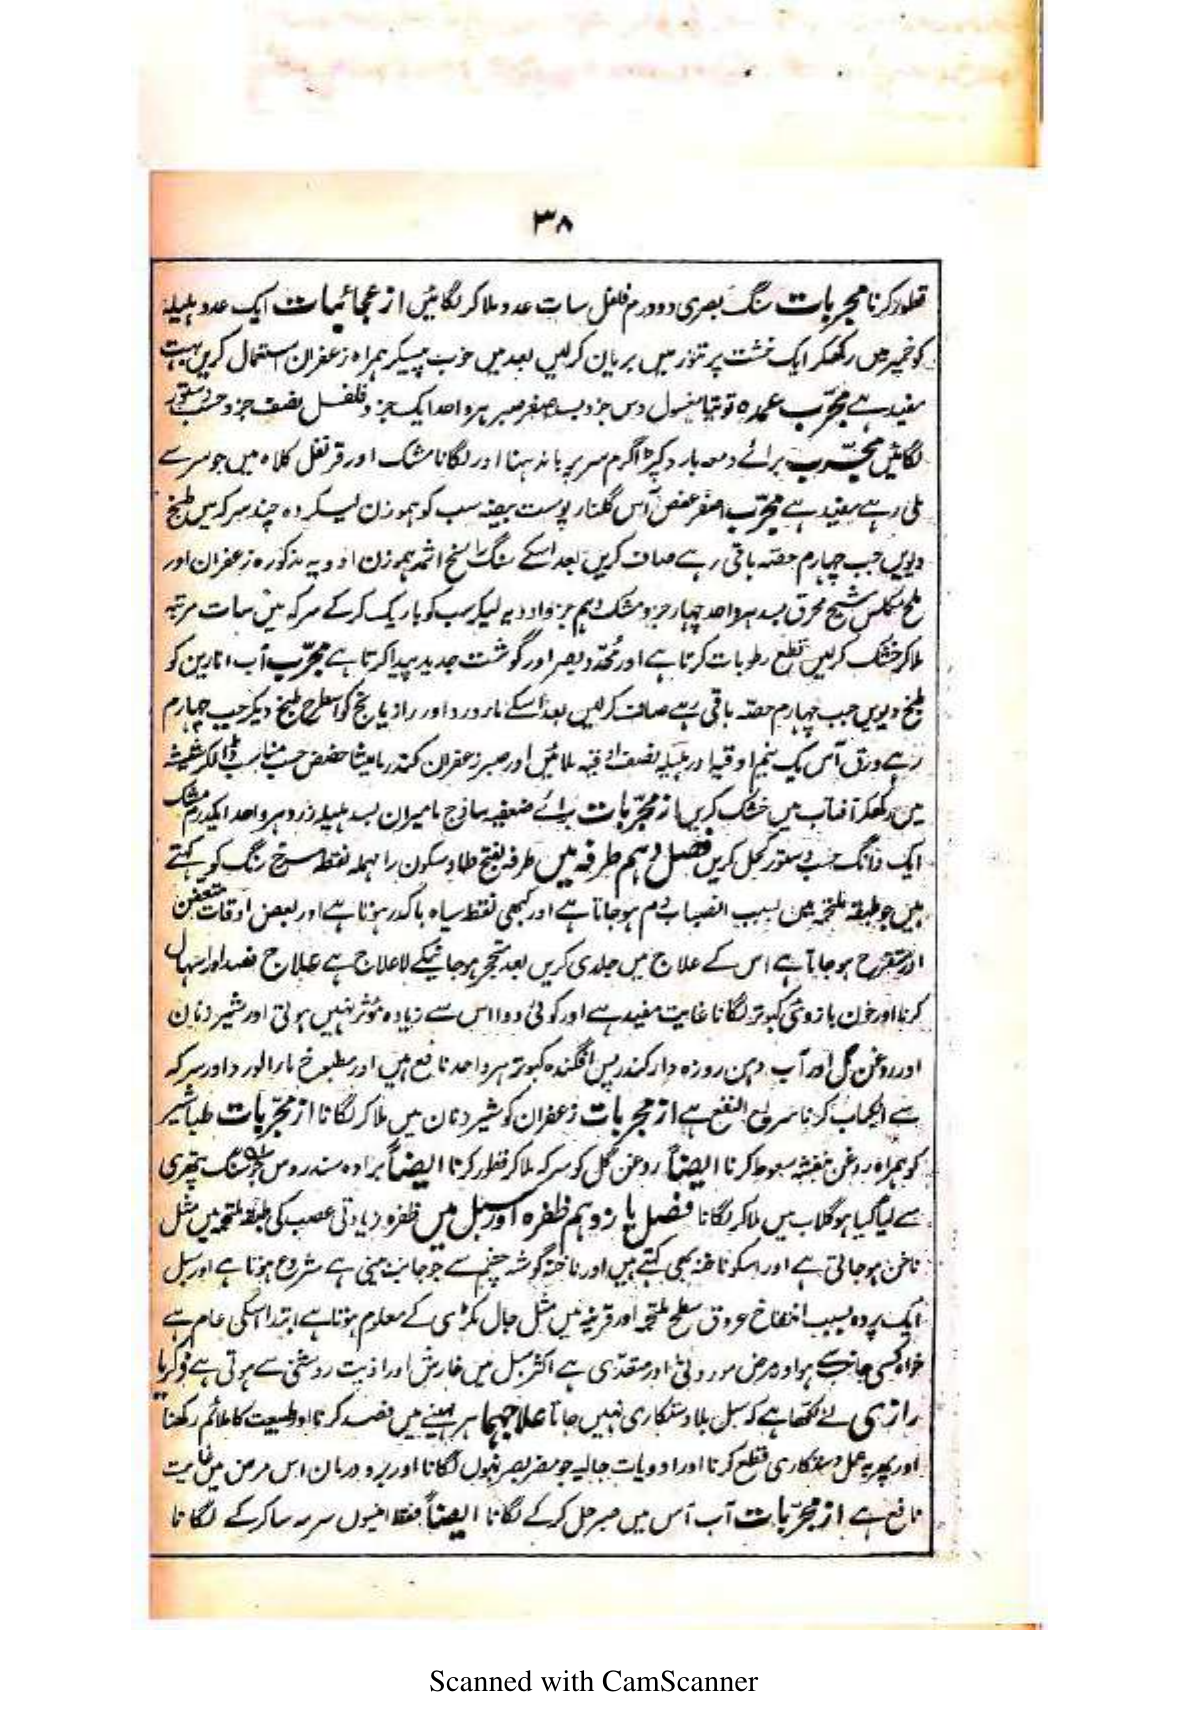 ۳۸
قطور کرنا مجربات سنگ بصری دو درم فلفل سات عدد ملا کر لگائیں از عجائبات ایک عدد ہلیلہ
کو خمیر میں رکھکر ایک خشت پر تنور میں بریان کرلیں بعد میں خوب پیسکر ہمراہ زعفران استعمال کریں بہت
مفید ہے مجرّب عمدہ توتیا مغسول دس جزو بسد صبر ہر واحد ایک جزو فلفل نصف جزو حسب دستور
لگائیں مجرّب برائے دمعہ بارد کپڑا گرم سر پر باندہنا اور لگانا مشک اور قرنفل کلاہ میں جو سر سے
ملی رہے مفید ہے مجرّب عفص آس گلنار پوست بیضہ سب کو ہموزن لیکر دہ چند سرکہ میں طبخ
دیویں جب چہارم حصّہ باقی رہے صاف کریں بعد اسکے سنگ راسخ اثمد ہموزن ادویہ مذکورہ زعفران اور
ملح شیح محرق بسد ہر واحد چہار جزو مشک دہم جزو ادویہ لیکر سب کو باریک کرکے سرکہ میں سات مرتبہ
ملا کر خشک کرلیں قطع رطوبات کرتا ہے اور محدّد بصر اور گوشت جدید پیدا کرتا ہے مجرّب آب انارین کو
طبخ دیویں جب چہارم حصّہ باقی رہے صاف کرلیں بعد اسکے ماورد اور رازیانج کو اسطرح طبخ دیکر جب چہارم
رہے ورق آس یک نیم اوقیہ اور ہلیلہ نصف اوقیہ ملائیں اور صبر زعفران کندر مامیثا حضض حسب مناسب ڈالکر شیشہ
میں رکھکر آفتاب میں خشک کریں از مجرّبات برائے ضعیفہ ساذج مامیران بسد ہلیلہ زرد ہر واحد ایکدرم مشک
ایک دانگ حسب دستور کحل کریں فصل دہم طرفہ میں طرفہ بفتح طا و سکون را مہملہ نقطہ سرخ رنگ کو کہتے
ہیں جو طبقہ ملتحمہ میں بسبب انصباب دم ہو جاتا ہے اور کبھی نقطہ سیاہ یا کدر ہوتا ہے اور بعض اوقات متعفن
اور متقرح ہو جاتا ہے اس کے علاج میں جلدی کریں بعد متحجر ہو جانیکے لاعلاج ہے علاج فصد اور اسہال
کرنا اور خون بازوئی کبوتر لگانا غایت مفید ہے اور کوئی دوا اس سے زیادہ مؤثر نہیں ہوتی اور شیر زنان
اور روغن گل اور آب دہن روزہ دار کندر پس افگندہ کبوتر ہر واحد نافع ہیں اور مطبوخ ماء الورد اور سرکہ
سے انکباب کرنا سریع النفع ہے از مجربات زعفران کو شیر زنان میں ملا کر لگانا از مجرّبات طباشیر
کو ہمراہ روغن بنفشہ سعوط کرنا ایضاً روغن گل کو سرکہ ملا کر قطور کرنا ایضاً برادہ سندروس جو سنگ پتھری
سے لیا گیا ہو گلاب میں ملا کر لگانا فصل یازدہم ظفرہ اور سبل میں ظفرہ زیادتی عصب کی طبقہ ملتحمہ میں مثل
ناخن ہو جاتی ہے اور اسکو ناخنہ بھی کہتے ہیں اور ناخنہ گوشہ چشم سے جو جانب بینی ہے شروع ہوتا ہے اور سبل
ایک پردہ بسبب انتفاخ عروق سطح ملتحمہ اور قرنیہ میں مثل جال مکڑی کے معلوم ہوتا ہے ابتدا اسکی عام ہے
خواہ کسی جانب سے ہو اور مرض موروثی اور متعدّی ہے اکثر سبل میں خارش اور اذیت روشنی سے ہوتی ہے زکریا
رازی نے لکھا ہے کہ سبل بلا دستکاری نہیں جاتا علاجہما ہر مہینے میں فصد کرنا اور طبیعت کا ملائم رکھنا
اور پھر بہ عمل دستکاری قطع کرنا اور ادویات جالیہ جو مضر بصر نہوں لگانا اور برودرمان اس مرض میں غایت
نافع ہے از مجرّبات آب آس میں صبر حل کرکے لگانا ایضاً فقط افیوں سرمہ سا کرکے لگانا
Scanned with CamScanner